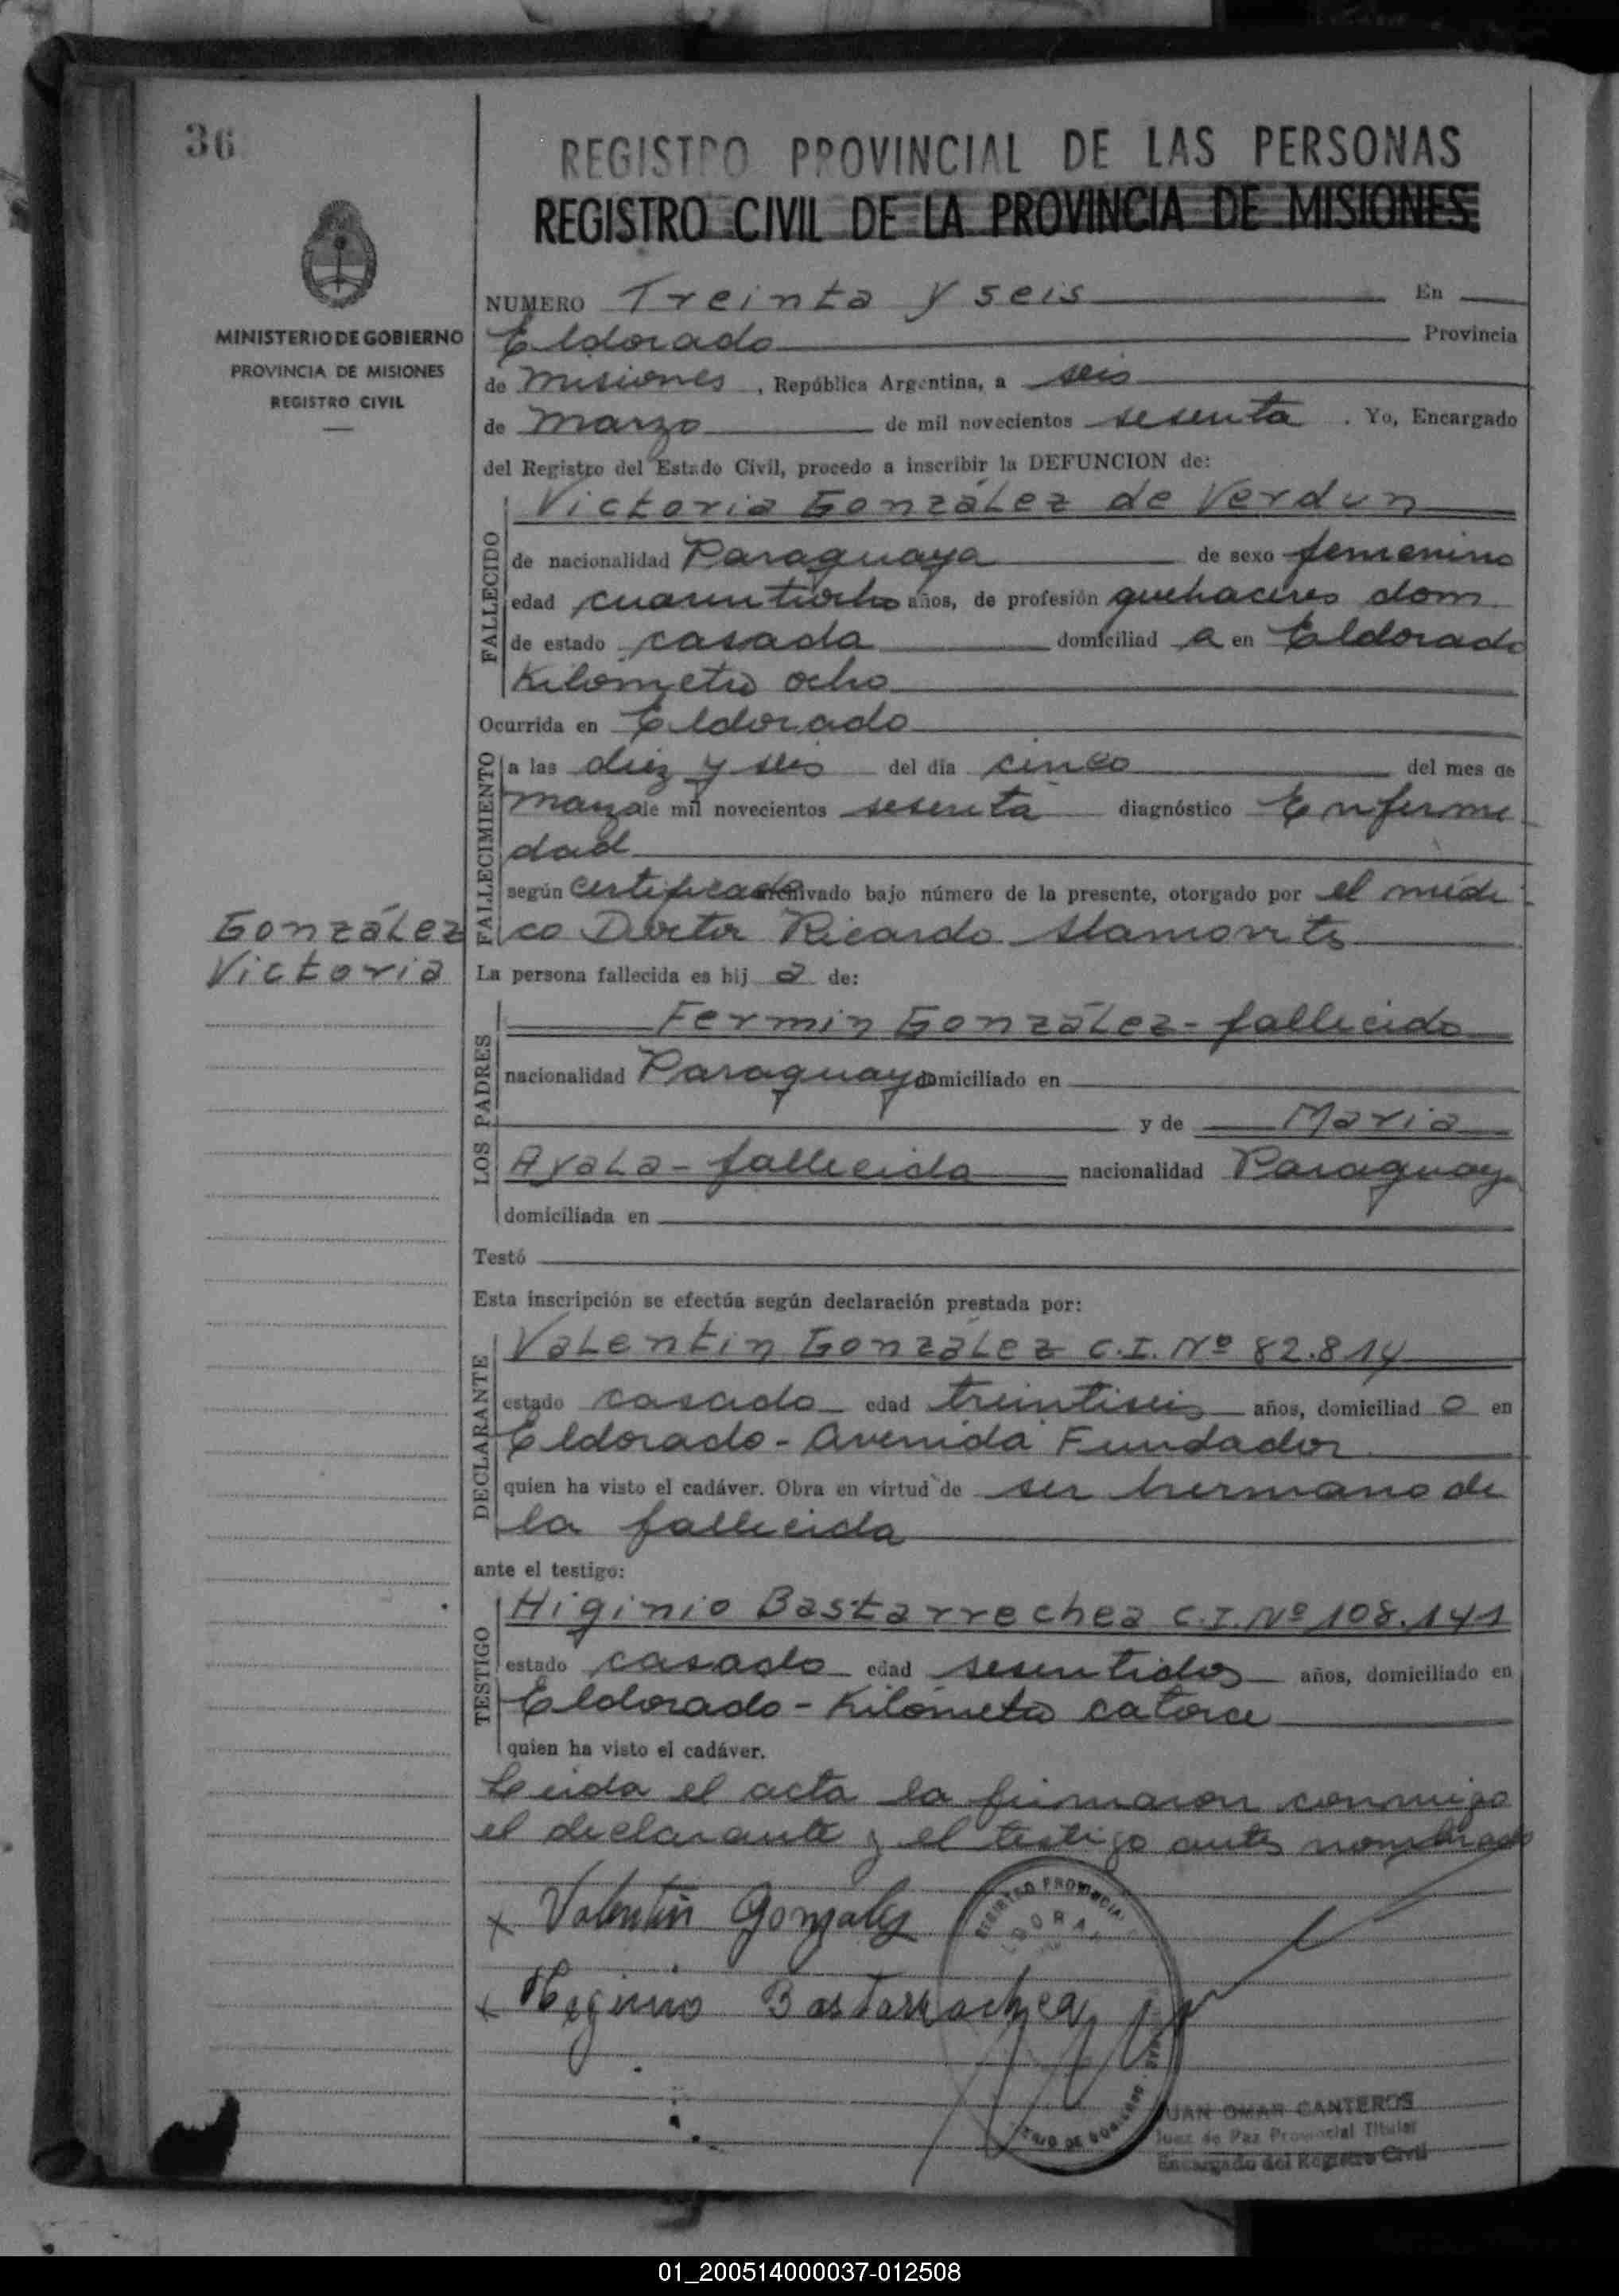 36
REGISTRO PROVINCIAL DE LAS PERSONAS
REGISTRO CIVIL DE LA PROVINCIA DE MISIONES
MINISTERIO DE GOBIERNO
PROVINCIA DE MISIONES
REGISTRO CIVIL
NUMERO Treinta y seis En
Eldorado Provincia
de Misiones, República Argentina, a seis
de Marzo de mil novecientos sesenta. Yo, Encargado
del Registro del Estado Civil, procedo a inscribir la DEFUNCION de:
FALLECIDO
Victoria González de Verdun
de nacionalidad Paraguaya de sexo femenino
edad cuarentiocho años, de profesión quehaceres dom.
de estado casada domiciliad a en Eldorado
Kilómetro ocho
Ocurrida en Eldorado
FALLECIMIENTO
a las diez y seis del día cinco del mes de
Marzo de mil novecientos sesenta diagnóstico Enferme
dad
según certificado archivado bajo número de la presente, otorgado por el médi
co Doctor Ricardo
González
Victoria
La persona fallecida es hij a de:
LOS PADRES
Fermin González - fallecido
nacionalidad Paraguayo domiciliado en
y de Maria
Ayala - fallecida nacionalidad Paraguay
domiciliada en
Testó
Esta inscripción se efectúa según declaración prestada por:
DECLARANTE
Valentin González C.I. Nº 82.814
estado casado edad treintiseis años, domiciliad o en
Eldorado - Avenida Fundador
quien ha visto el cadáver. Obra en virtud de ser hermano de
la fallecida
ante el testigo:
TESTIGO
Higinio Bastarrechea C.I. Nº 108.141
estado casado edad sesentidos años, domiciliado en
Eldorado - Kilómetro catorce
quien ha visto el cadáver.
Leida el acta la firmaron conmigo
el declarante y el testigo antes nombrado
x Valentin Gonzalez
REGISTRO PROVINCIAL
x Higinio Bastarrachea
JUAN OMAR CANTEROS
Juez de Paz Provincial Titular
Encargado del Registro Civil
01_200514000037-012508